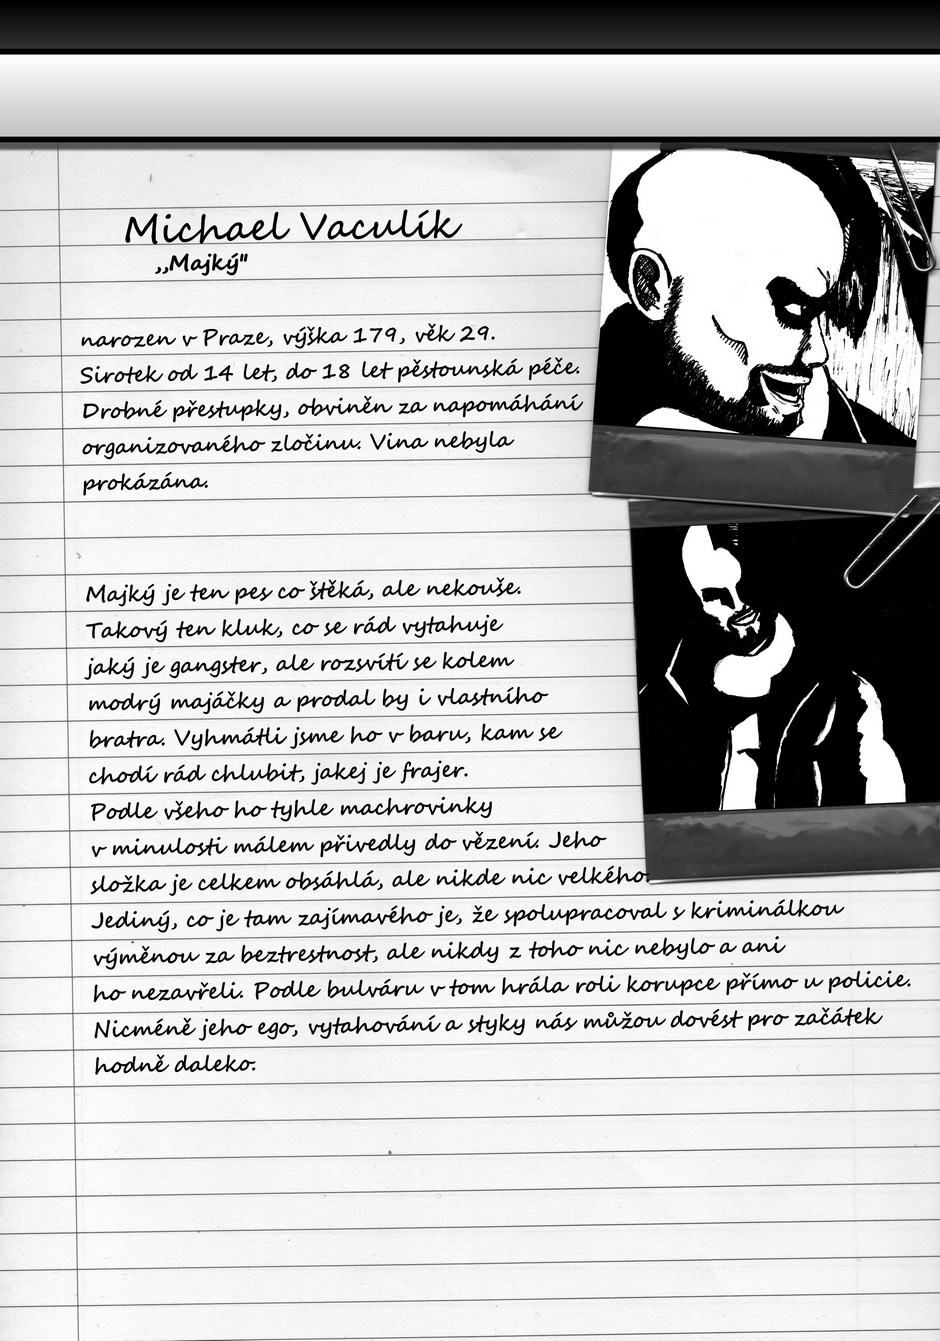 Michael Vaculík
,,Majký"
narozen v Praze, výška 179, věk 29.
Sirotek od 14 let, do 18 let pěstounská péče.
Drobné přestupky, obviněn za napomáhání
organizovaného zločinu. Vina nebyla
prokázána.
Majký je ten pes co štěká, ale nekouše.
Takový ten kluk, co se rád vytahuje
jaký je gangster, ale rozsvítí se kolem
modrý majáčky a prodal by i vlastního
bratra. Vyhmátli jsme ho v baru, kam se
chodí rád chlubit, jakej je frajer.
Podle všeho ho tyhle machrovinky
v minulosti málem přivedly do vězení. Jeho
složka je celkem obsáhlá, ale nikde nic velkého.
Jediný, co je tam zajímavého je, že spolupracoval s kriminálkou
výměnou za beztrestnost, ale nikdy z toho nic nebylo a ani
ho nezavřeli. Podle bulváru v tom hrála roli korupce přímo u policie.
Nicméně jeho ego, vytahování a styky nás můžou dovést pro začátek
hodně daleko.